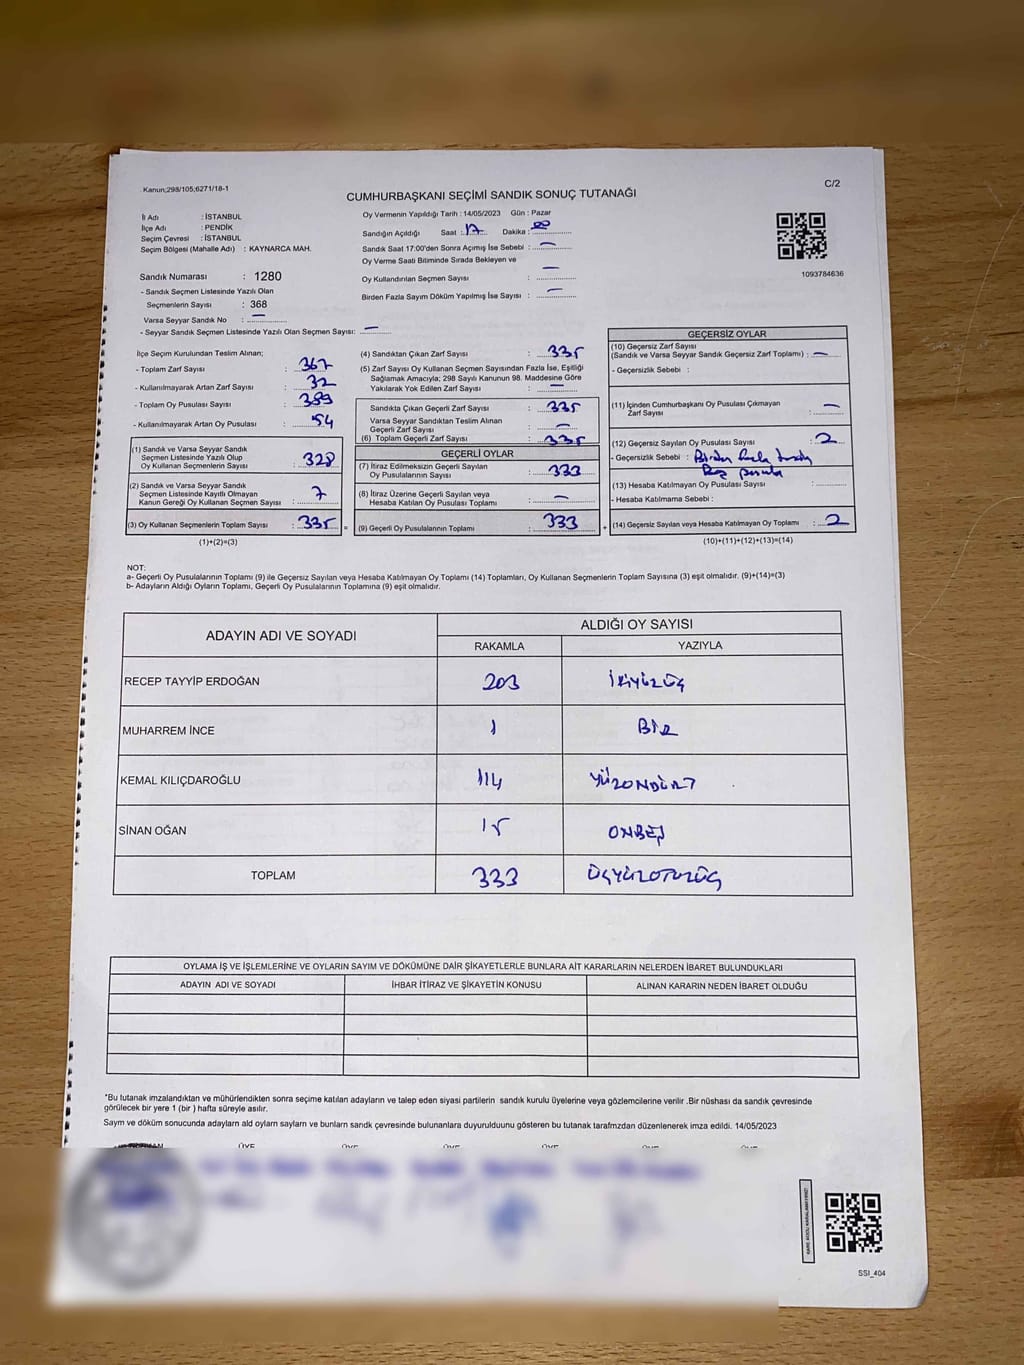 Kanun;298/105;6271/18-1
C/2
CUMHURBAŞKANI SEÇİMİ SANDIK SONUÇ TUTANAĞI
İl Adı : İSTANBUL
İlçe Adı : PENDİK
Seçim Çevresi : İSTANBUL
Seçim Bölgesi (Mahalle Adı) : KAYNARCA MAH.
Oy Vermenin Yapıldığı Tarih : 14/05/2023 Gün : Pazar
Sandığın Açıldığı Saat : 17 Dakika : 00
Sandık Saat 17:00'den Sonra Açımış İse Sebebi : —
Oy Verme Saati Bitiminde Sırada Bekleyen ve
Oy Kullandırılan Seçmen Sayısı : —
Birden Fazla Sayım Döküm Yapılmış İse Sayısı : —
1093784636
Sandık Numarası : 1280
- Sandık Seçmen Listesinde Yazılı Olan
Seçmenlerin Sayısı : 368
Varsa Seyyar Sandık No : —
- Seyyar Sandık Seçmen Listesinde Yazılı Olan Seçmen Sayısı: —
İlçe Seçim Kurulundan Teslim Alınan;
- Toplam Zarf Sayısı : 367
- Kullanılmayarak Artan Zarf Sayısı : 32
- Toplam Oy Pusulası Sayısı : 389
- Kullanılmayarak Artan Oy Pusulası : 54
(1) Sandık ve Varsa Seyyar Sandık
Seçmen Listesinde Yazılı Olup
Oy Kullanan Seçmenlerin Sayısı : 328
(2) Sandık ve Varsa Seyyar Sandık
Seçmen Listesinde Kayıtlı Olmayan
Kanun Gereği Oy Kullanan Seçmen Sayısı : 7
(3) Oy Kullanan Seçmenlerin Toplam Sayısı : 335 =
(1)+(2)=(3)
(4) Sandıktan Çıkan Zarf Sayısı : 335
(5) Zarf Sayısı Oy Kullanan Seçmen Sayısından Fazla İse, Eşitliği
Sağlamak Amacıyla; 298 Sayılı Kanunun 98. Maddesine Göre
Yakılarak Yok Edilen Zarf Sayısı : —
Sandıkta Çıkan Geçerli Zarf Sayısı : 335
Varsa Seyyar Sandıktan Teslim Alınan
Geçerli Zarf Sayısı : —
(6) Toplam Geçerli Zarf Sayısı : 335
GEÇERLİ OYLAR
(7) İtiraz Edilmeksizin Geçerli Sayılan
Oy Pusulalarının Sayısı : 333
(8) İtiraz Üzerine Geçerli Sayılan veya
Hesaba Katılan Oy Pusulaları Toplamı : —
(9) Geçerli Oy Pusulalarının Toplamı : 333 +
GEÇERSİZ OYLAR
(10) Geçersiz Zarf Sayısı
(Sandık ve Varsa Seyyar Sandık Geçersiz Zarf Toplamı) : —
- Geçersizlik Sebebi :
(11) İçinden Cumhurbaşkanı Oy Pusulası Çıkmayan
Zarf Sayısı : —
(12) Geçersiz Sayılan Oy Pusulası Sayısı : 2
- Geçersizlik Sebebi : Birden fazla
pusula
(13) Hesaba Katılmayan Oy Pusulası Sayısı :
- Hesaba Katılmama Sebebi :
(14) Geçersiz Sayılan veya Hesaba Katılmayan Oy Toplamı : 2
(10)+(11)+(12)+(13)=(14)
NOT:
a- Geçerli Oy Pusulalarının Toplamı (9) ile Geçersiz Sayılan veya Hesaba Katılmayan Oy Toplamı (14) Toplamları, Oy Kullanan Seçmenlerin Toplam Sayısına (3) eşit olmalıdır. (9)+(14)=(3)
b- Adayların Aldığı Oyların Toplamı, Geçerli Oy Pusulalarının Toplamına (9) eşit olmalıdır.
ADAYIN ADI VE SOYADI
ALDIĞI OY SAYISI
RAKAMLA YAZIYLA
RECEP TAYYİP ERDOĞAN 203 İKİYÜZÜÇ
MUHARREM İNCE 1 BİR
KEMAL KILIÇDAROĞLU 114 YÜZONDÖRT
SİNAN OĞAN 15 ONBEŞ
TOPLAM 333 ÜÇYÜZOTUZÜÇ
OYLAMA İŞ VE İŞLEMLERİNE VE OYLARIN SAYIM VE DÖKÜMÜNE DAİR ŞİKAYETLERLE BUNLARA AİT KARARLARIN NELERDEN İBARET BULUNDUKLARI
ADAYIN ADI VE SOYADI İHBAR İTİRAZ VE ŞİKAYETİN KONUSU ALINAN KARARIN NEDEN İBARET OLDUĞU
*Bu tutanak imzalandıktan ve mühürlendikten sonra seçime katılan adayların ve talep eden siyasi partilerin sandık kurulu üyelerine veya gözlemcilerine verilir .Bir nüshası da sandık çevresinde
görülecek bir yere 1 (bir ) hafta süreyle asılır.
Sayım ve döküm sonucunda adayların ald oyların sayların ve bunların sandk çevresinde bulunanlara duyurulduunu gösteren bu tutanak tarafmzdan düzenlenerek imza edildi. 14/05/2023
SSI_404